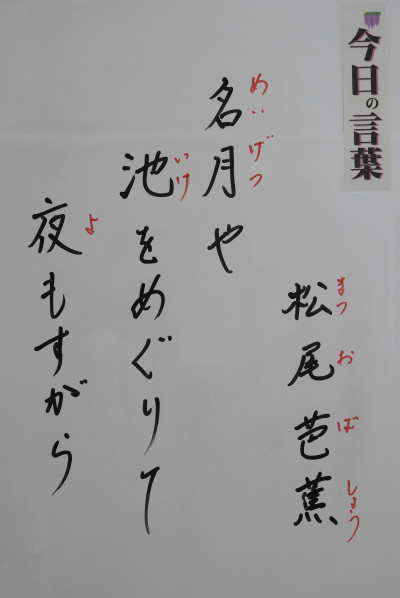 今日の言葉
松尾芭蕉
まつおばしょう
名月や
めいげつ
池をめぐりて
いけ
夜もすがら
よ